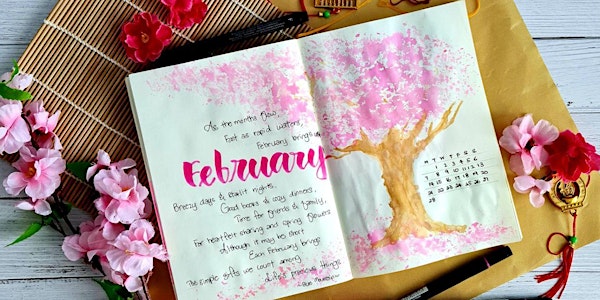 As the months flow,
Fast as rapid waters,
February brings us
February
Breezy days & starlit nights.
Good books & cozy dinners,
Time for friends & family,
For heartfelt sharing and spring flowers
Although it may be short
Each February brings
The simple gifts we count among
Life's precious things
M T W T F S S
1 2 3 4 5 6
7 8 9 10 11 12 13
14 15 16 17 18 19 20
21 22 23 24 25 26 27
28